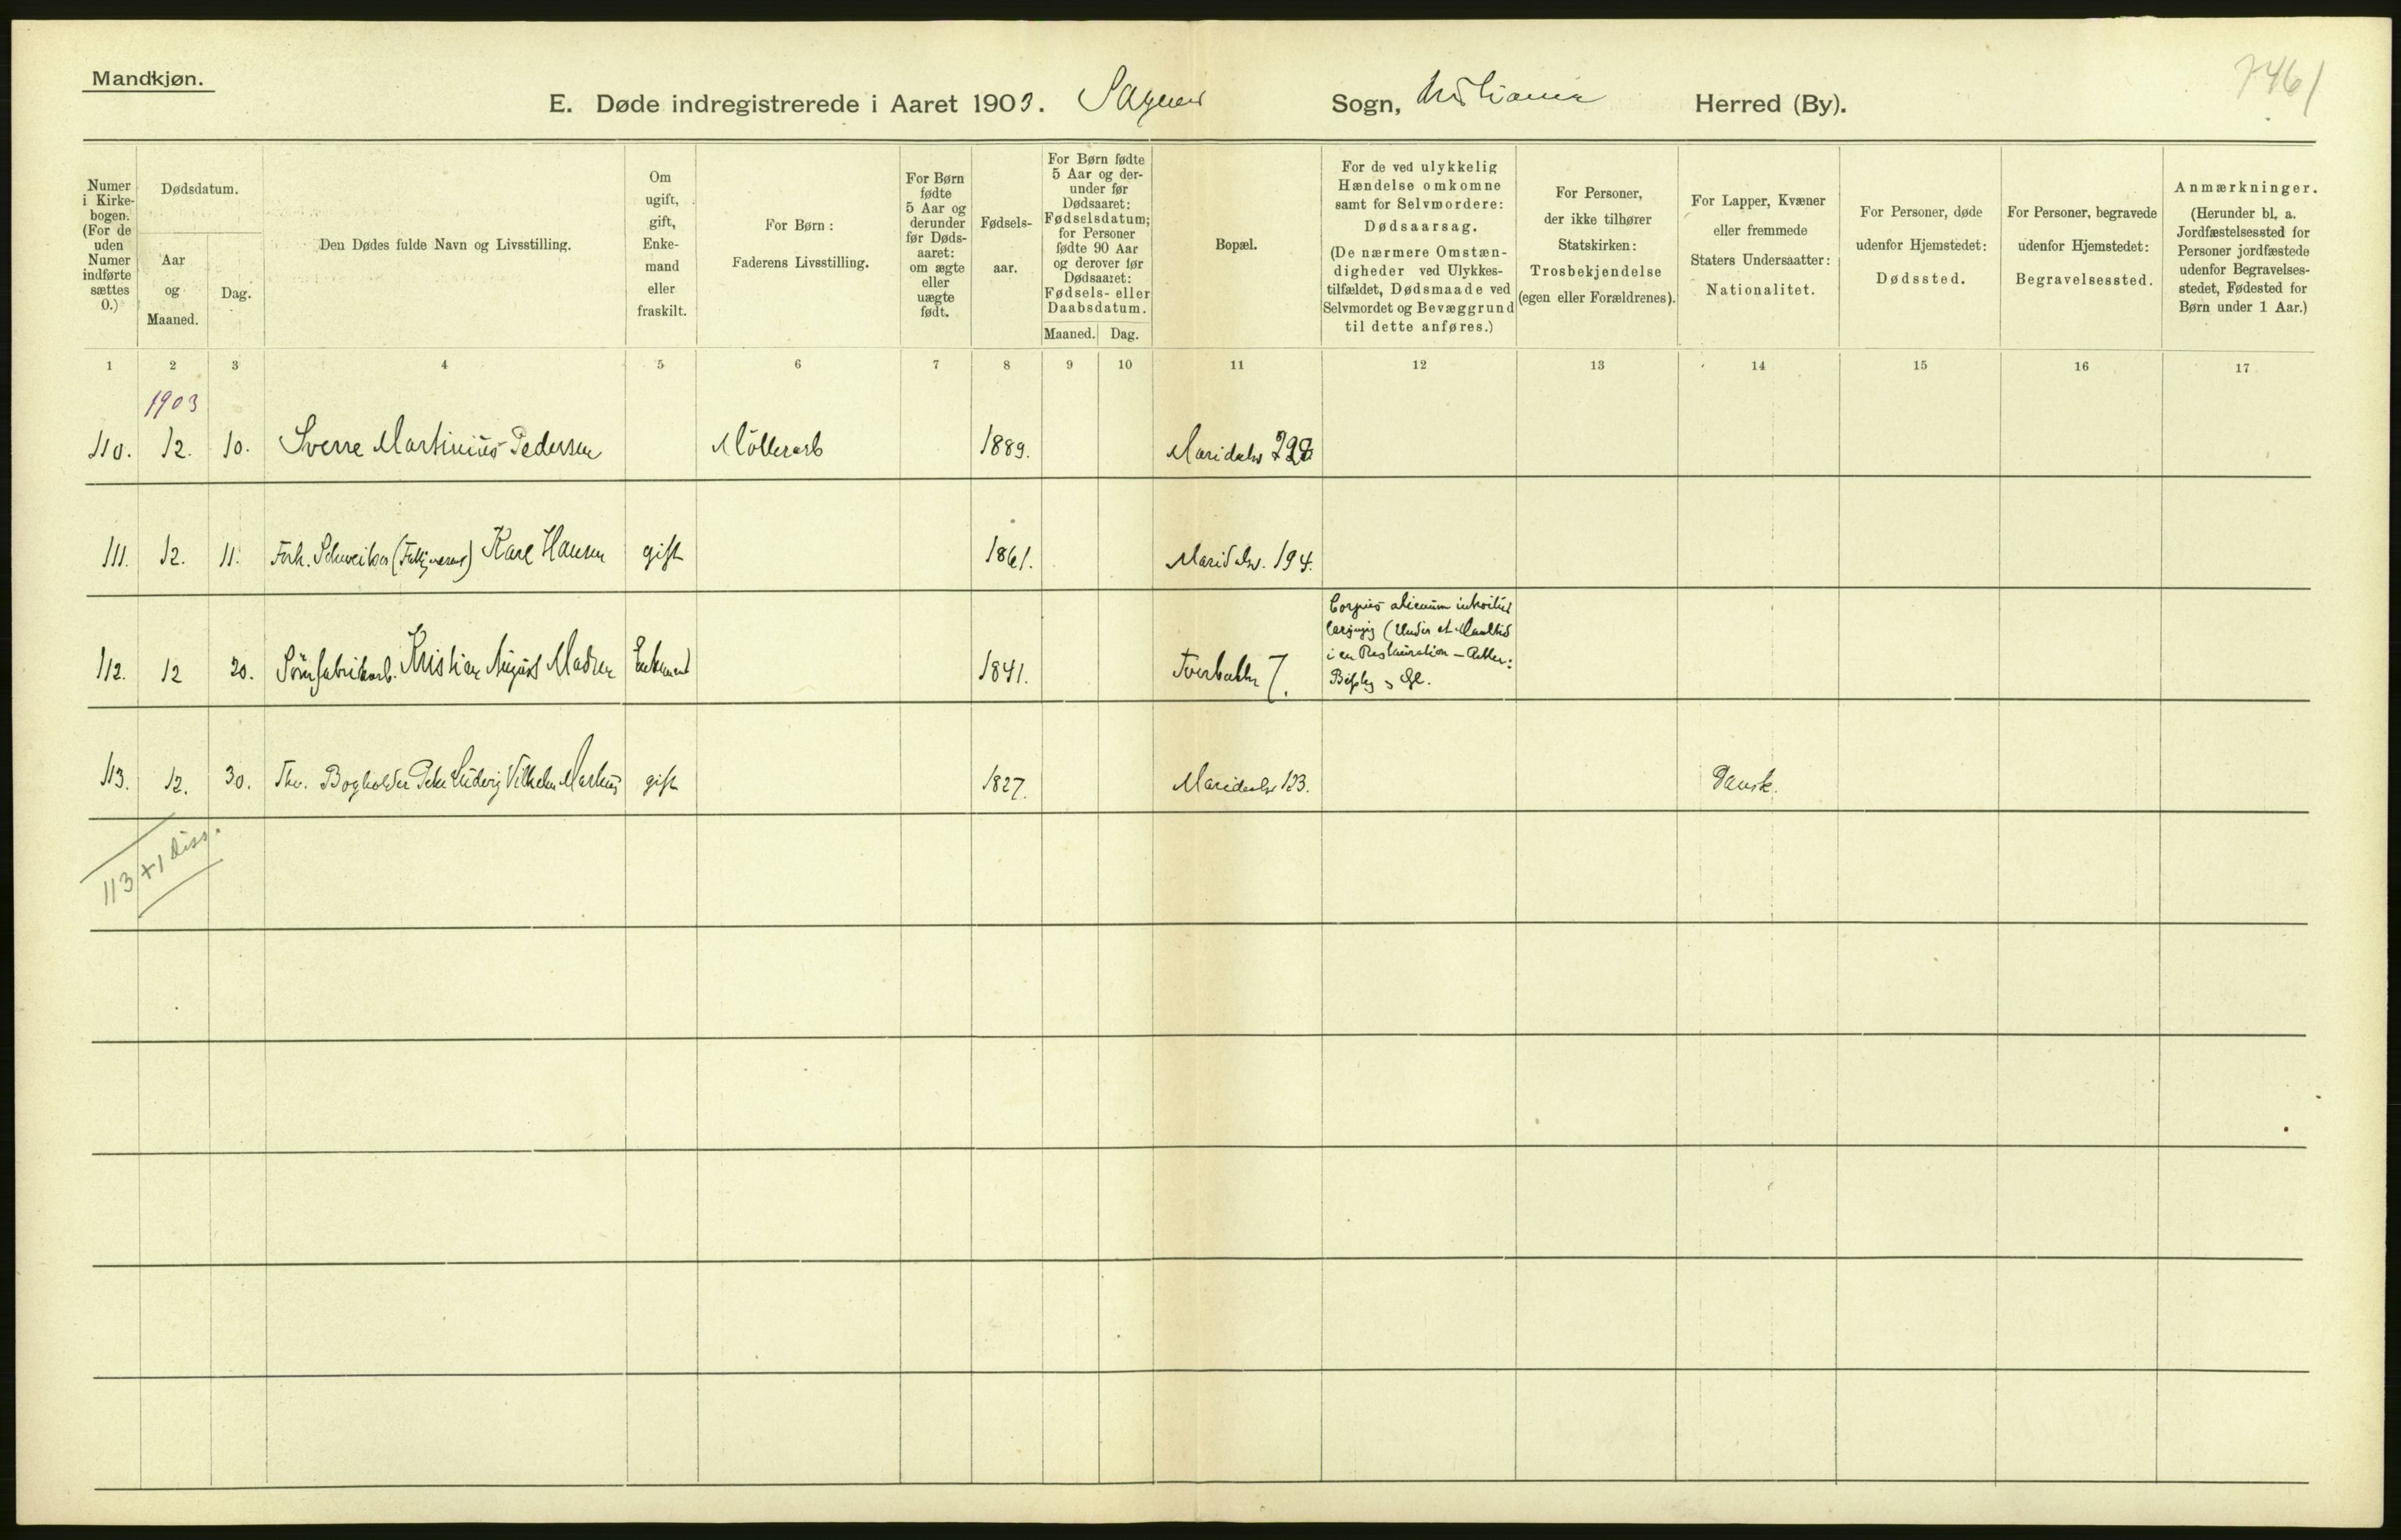 Mandkjøn.
7461
E. Døde indregistrerede i Aaret 1903. Sagenes Sogn, Kristiania Herred (By).
Numer i Kirkebogen. (For de uden Numer indførte sættes 0.)
Dødsdatum.
Aar og Maaned.
Dag.
Den Dødes fulde Navn og Livsstilling.
Om ugift, gift, Enkemand eller fraskilt.
For Børn: Faderens Livsstilling.
For Børn fødte 5 Aar og derunder før Dødsaaret: om ægte eller uægte født.
Fødselsaar.
For Børn fødte 5 Aar og derunder før Dødsaaret: Fødselsdatum; for Personer fødte 90 Aar og derover før Dødsaaret: Fødsels- eller Daabsdatum.
Maaned. Dag.
Bopæl.
For de ved ulykkelig Hændelse omkomne samt for Selvmordere: Dødsaarsag. (De nærmere Omstændigheder ved Ulykkestilfældet, Dødsmaade ved Selvmordet og Bevæggrund til dette anføres.)
For Personer, der ikke tilhører Statskirken: Trosbekjendelse (egen eller Forældrenes).
For Lapper, Kvæner eller fremmede Staters Undersaatter: Nationalitet.
For Personer, døde udenfor Hjemstedet: Dødssted.
For Personer, begravede udenfor Hjemstedet: Begravelsessted.
Anmærkninger. (Herunder bl. a. Jordfæstelsessted for Personer jordfæstede udenfor Begravelsesstedet, Fødested for Børn under 1 Aar.)
1 2 3 4 5 6 7 8 9 10 11 12 13 14 15 16 17
1903
110. 12. 10. Sverre Martinius Pedersen Möllerarb 1889. Maridalsv
111. 12. 11. Forh. Karl Hansen gift 1861. Maridalsv. 194.
112. 12 20. Kristian August Madsen Enkemand 1841. 7.
Corpus alienum introitus
laryngis (Under et Maaltid
i en Restauration —
113. 12. 30. Fhv. Bogholder Peter Ludvig Vilhelm Markus gift 1827. Maridalsv 123. Dansk.
113 + 1 diss.